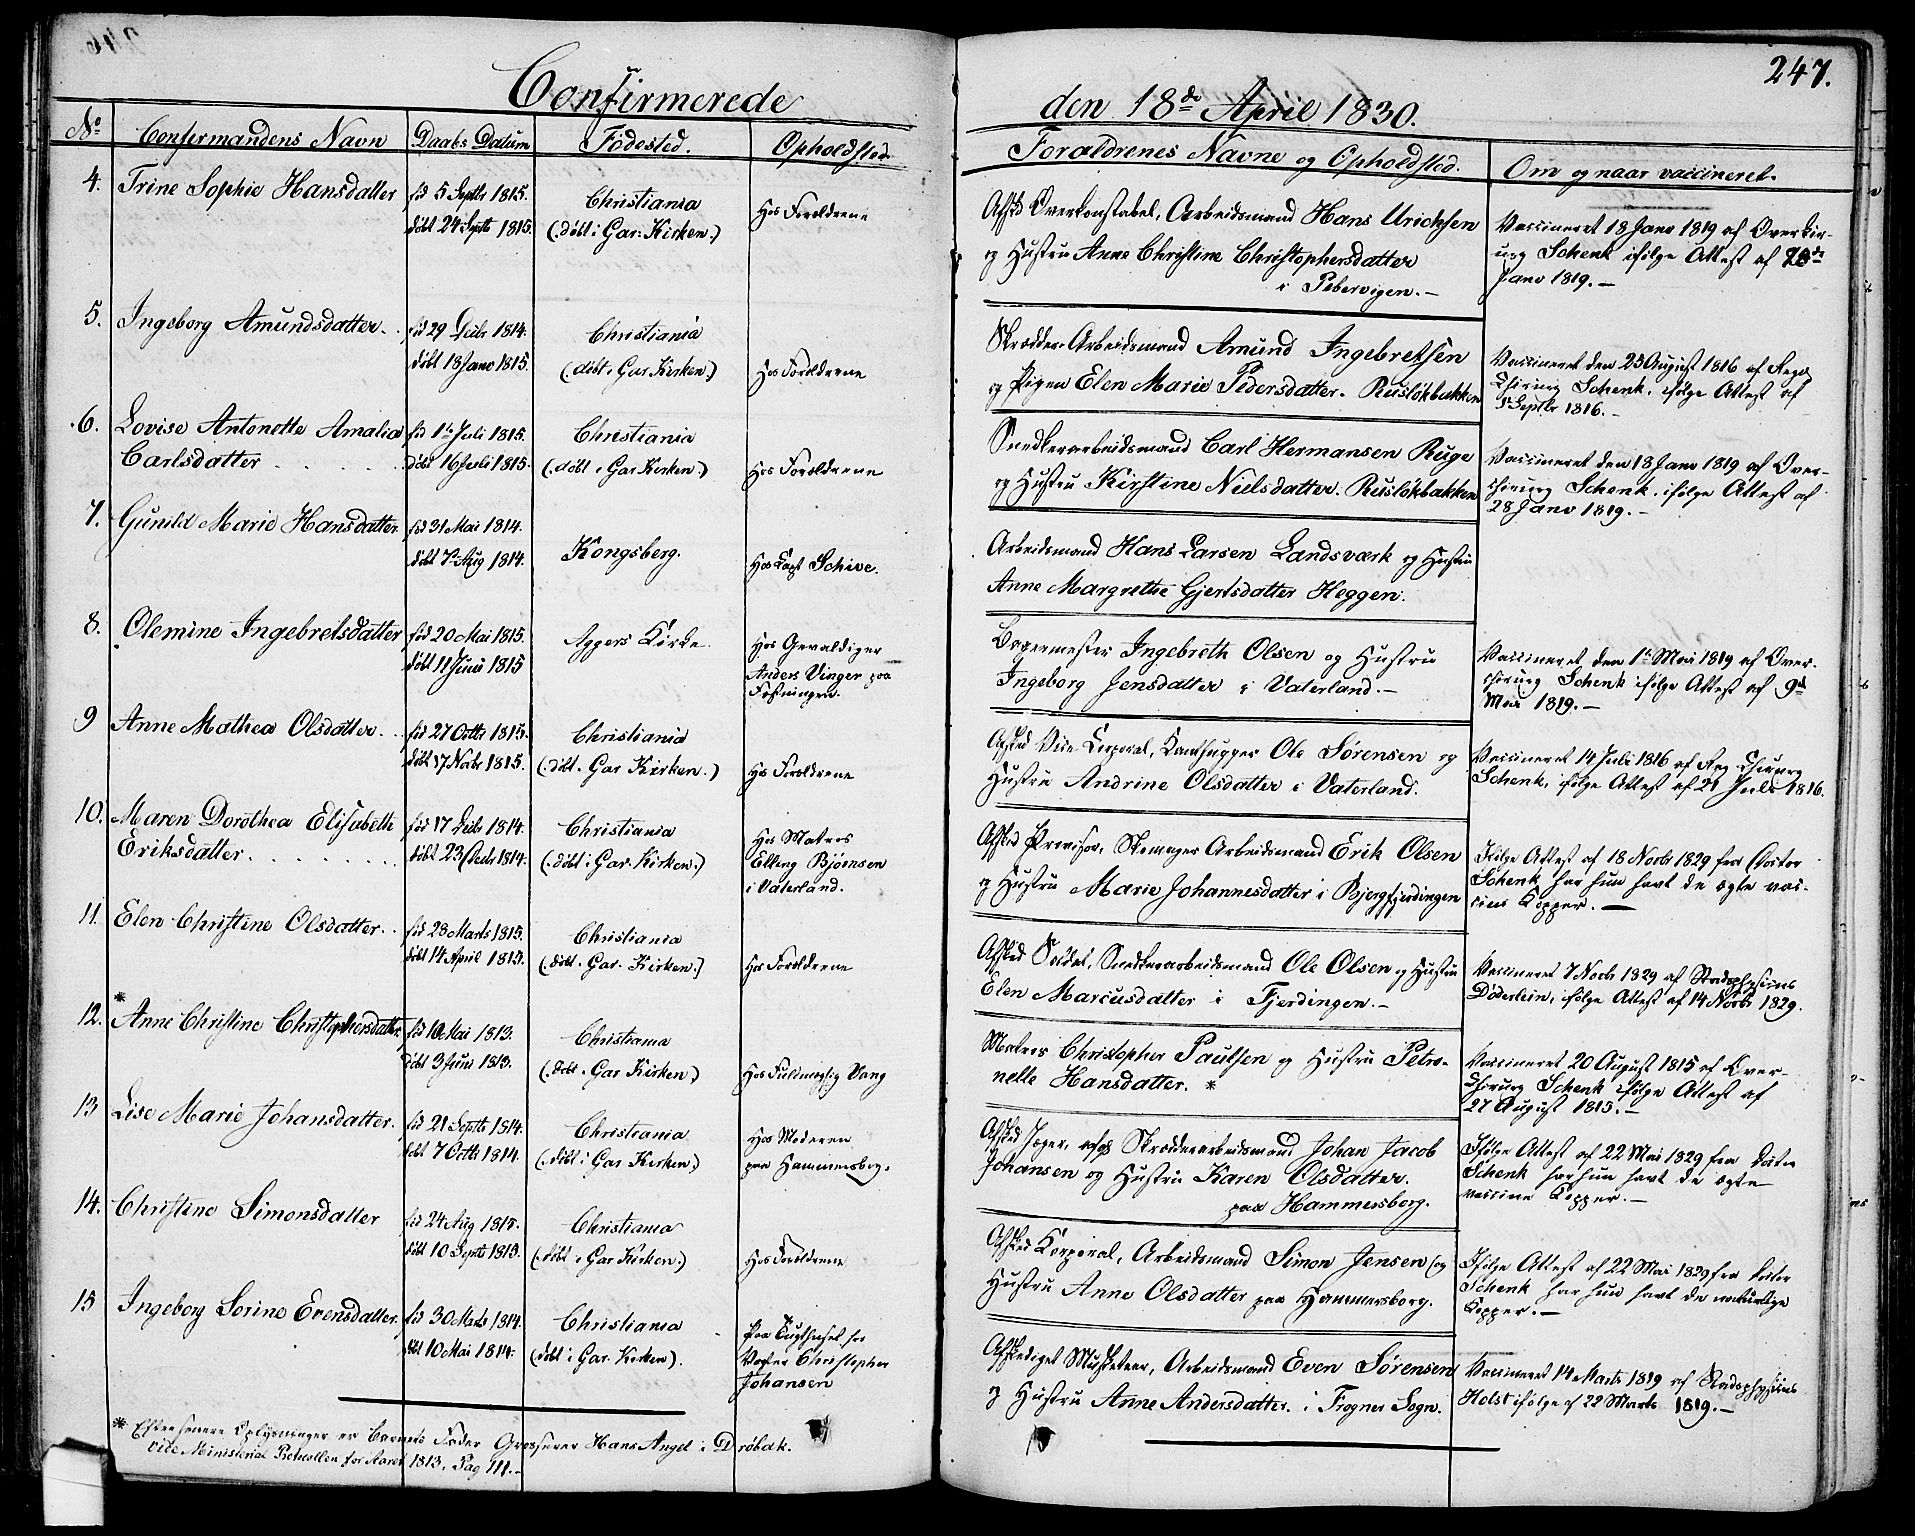 247.
Confirmerede
den 18de April 1830.
No Confirmandens Navn Daabs Datum Födested. Opholdsted
Forældrenes Navne og Opholdsted. Om og naar vaccineret.
4. Trine Sophie Hansdatter
fød 5 Septbr 1815.
döbt 24 Septb 1815.
Christiania
(döbt i Gar: Kirken.)
Hos Forældrene
Afsked Overkonstabel, Arbeidsmand Hans Urichsen
og Hustru Anne Christine Christophersdatter
i Pebervigen.-
Vaccineret 18 Janv 1819 af Overkir-
urg Schenk ifölge Attest af 28de
Janv 1819.-
5. Ingeborg Amundsdatter.
fød 29 Decbr 1814.
döbt 18 Janv 1815.
Christiania
(döbt i Gar Kirken.)
Hos Forældrene
Skrædder-Arbeidsmand Amund Ingebretsen
og Pigen Elen Marie Pedersdatter. Ruslökbakken
Vaccineret den 25 August 1816 af Reg
Chirurg Schenk, ifölge Attest af
1 Septbr 1816.-
6. Lovise Antonette Amalia
Carlsdatter
fød 1te Juli 1815.
döbt 16 Juli 1815.
Christiania
(döbt i Gar Kirken.)
Hos Forældrene
Snedkerarbeidsmand Carl Hermansen Ruge
og Hustru Kirstine Nielsdatter. Ruslökbakken
Vaccineret den 18 Janv 1819 af Over-
chirurg Schenk, ifölge Attest af
28 Janv 1819.-
7. Gunild Marie Hansdatter
fød 31 Mai 1814.
döbt 7 Aug 1814.
Kongsberg.
Hos Capt Schive.
Arbeidsmand Hans Larsen Landsværk og Hustru
Anne Margrethe Gjertsdatter Heggen.
8. Olemine Ingebretsdatter
fød 20 Mai 1815.
döbt 11 Juni 1815
Aggers Kirke.
Hos Gevaldiger
Anders Vinger paa
Fæstningen.
Bogermester Ingebreth Olsen og Hustru
Ingeborg Jensdatter i Vaterland.-
Vaccineret den 1te Mai 1819 af Over-
chirurg Schenk ifölge Attest af 9de
Mai 1819.-
9 Anne Mathea Olsdatter.
fød 27 Octbr 1815.
döbt 17 Novbr 1815.
Christiania
(döbt i Gar Kirken.)
Hos Forældrene
Afsked Vice Corporal, Ole Sørensen og
Hustru Andrine Olsdatter i Vaterland.
Vaccineret 14 Juli 1816 af Reg Chirurg
Schenk, ifölge Attest af 21 Juli 1816.
10. Maren Dorothea Elisabeth
Eriksdatter
fød 17 Decbr 1814.
döbt 23 Decbr 1814.
Christiania
(döbt i Gar. Kirken.)
Hos Matros
Elling Björnsen
i Vaterland.
Afsked Provisor, Skomager Arbeidsmand Erik Olsen
og Hustru Marie Johannesdatter i Bjergfjerdingen
Ifölge Attest af 18 Novbr 1829 fra Doctor
Schenk har hun havt de ægte vac-
cine Kopper.-
11. Elen Christine Olsdatter.
fød 28 Marts 1815.
döbt 14 April 1815.
Christiania
(döbt i Gar. Kirken.)
Hos Forældrene
Afsked Soldat, Snedkerarbeidsmand Ole Olsen og Hustru
Elen Marcusdatter i Fjerdingen.-
Vaccineret 7 Novbr 1829 af Stadsphysicus
Döderlein, ifölge Attest af 14 Novbr 1829.
*
12. Anne Christine Christophersdatter
fød 10 Mai 1813.
döbt 3 Juni 1813.
Christiania
(döbt i Gar Kirken.)
Hos Fuldmægtig Vang
Matros Christopher Paulsen og Hustru Petro-
nelle Hansdatter. *
Vaccineret 20 August 1815 af Over-
Chirurg Schenk ifölge Attest af
27 August 1815.-
13 Lise Marie Johansdatter.
fød 21 Septbr 1814.
döbt 7 Octbr 1814.
Christiania
(döbt i Gar Kirken.)
Hos Moderen
paa Hammersborg.
Afsked Jæger, Skrædderarbeidsmand Johan Jacob
Johansen og Hustru Karen Olsdatter.
paa Hammersborg.
Ifölge Attest af 22 Mai 1829 fra Doctor
Schenk har hun havt de ægte
vaccine Kopper.-
14. Christine Simonsdatter
fød 24 Aug 1815.
döbt 10 Septb 1815.
Christiania
(döbt i Gar Kirken.)
Hos Forældrene
Afsked Korporal, Arbeidsmand Simon Jensen og
Hustru Anne Olsdatter paa Hammersborg.
Ifölge Attest af 22 Mai 1829 fra Doctor
Schenk har hun havt de naturlige
Kopper.-
15 Ingeborg Sorine Evensdatter.
fød 30 Marts 1814.
döbt 10 Mai 1814.
Christiania
(döbt i Gar. Kirken).
Paa Tugthuset hos
Vagter Christopher
Johansen
Afskediget Musketeer, Arbeidsmand Even Sørensen
og Hustru Anne Andersdatter. i Frogner Sogn.
Vaccineret 14 Marts 1819 af Stadsphysicus
Holst ifölge af 22 Marts 1819.-
* Efter senere Oplysninger er Barnets Fader Grosserer Hans Angel i Dröbak.
vide Ministerial Protocollen for Aaret 1813, Pag 111.-